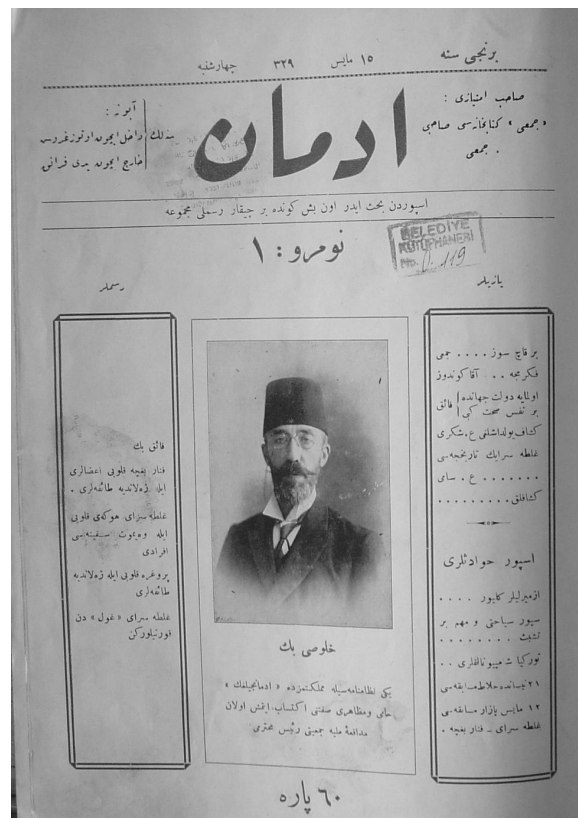 برنجی سنه
١٥ مایس ٣٢٩ چهارشنبه
صاحب امتیازی :
«جمعی» كتابخانه‌سی صاحبی
جمعی .
ادمان
آبونه :
سنه‌لك داخل ایچون اوتوز غروش
خارج ایچون یدی فرانق
اسپوردن بحث ایدر اون بش كونده بر چیقار رسملی مجموعه
نومرو : ١
BELEDİYE
KÜTÜPHANESİ
No. 0.119
یازیلر
بر قاچ سوز . . . . جمی
فكرمجه . . . آقا كوندوز
اولمایه دولت جهانده
بر نفس صحت كبی
فائق
كشاف یولداشلغی ع . شكری
غلطه سرایك تاریخچه‌سی
. . . . . . . ع . سامی
كشافلق . . . . . . . . .
اسپور حوادثلری
ازمیرلیلر كلیور . . . .
سپور سیاحتی و مهم بر
تشبث . . . . . . . .
توركیا شمپیونالقلری . .
٢١ نیسانده مسابقه‌سی
١٢ مایس بازار مسابقه‌سی
غلطه سرای ـ فنار بغچه .
رسملر
فائق بك
فنار بغچه قلوبی اعضالری
ایله ژه‌لاندیه طائفه‌لری .
غلطه سرای هوكه‌ی قلوبی
ایله وه‌یموث سفینه‌سی
افرادی
پروغره قلوبی ایله ژه‌لاندیه
طائفه‌لری
غلطه سرای «غول» دن
قورتیلوركن
خلوصی بك
یكی نظامنامه‌سیله مملكتمزده «ادمانجیلغك»
حامی و مظاهری صفتنی اكتساب ایتمش اولان
مدافعهٔ ملیه جمعیتی رئیس محتری
٦٠ پاره